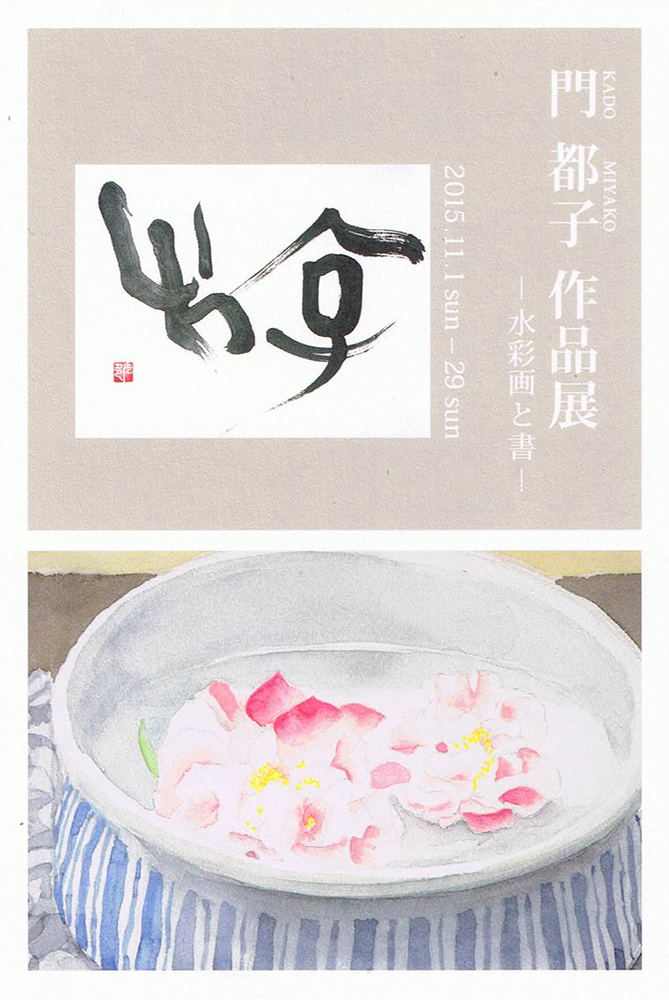 門 都子 作品展
KADO MIYAKO
— 水彩画と書 —
2015.11.1 sun – 29 sun